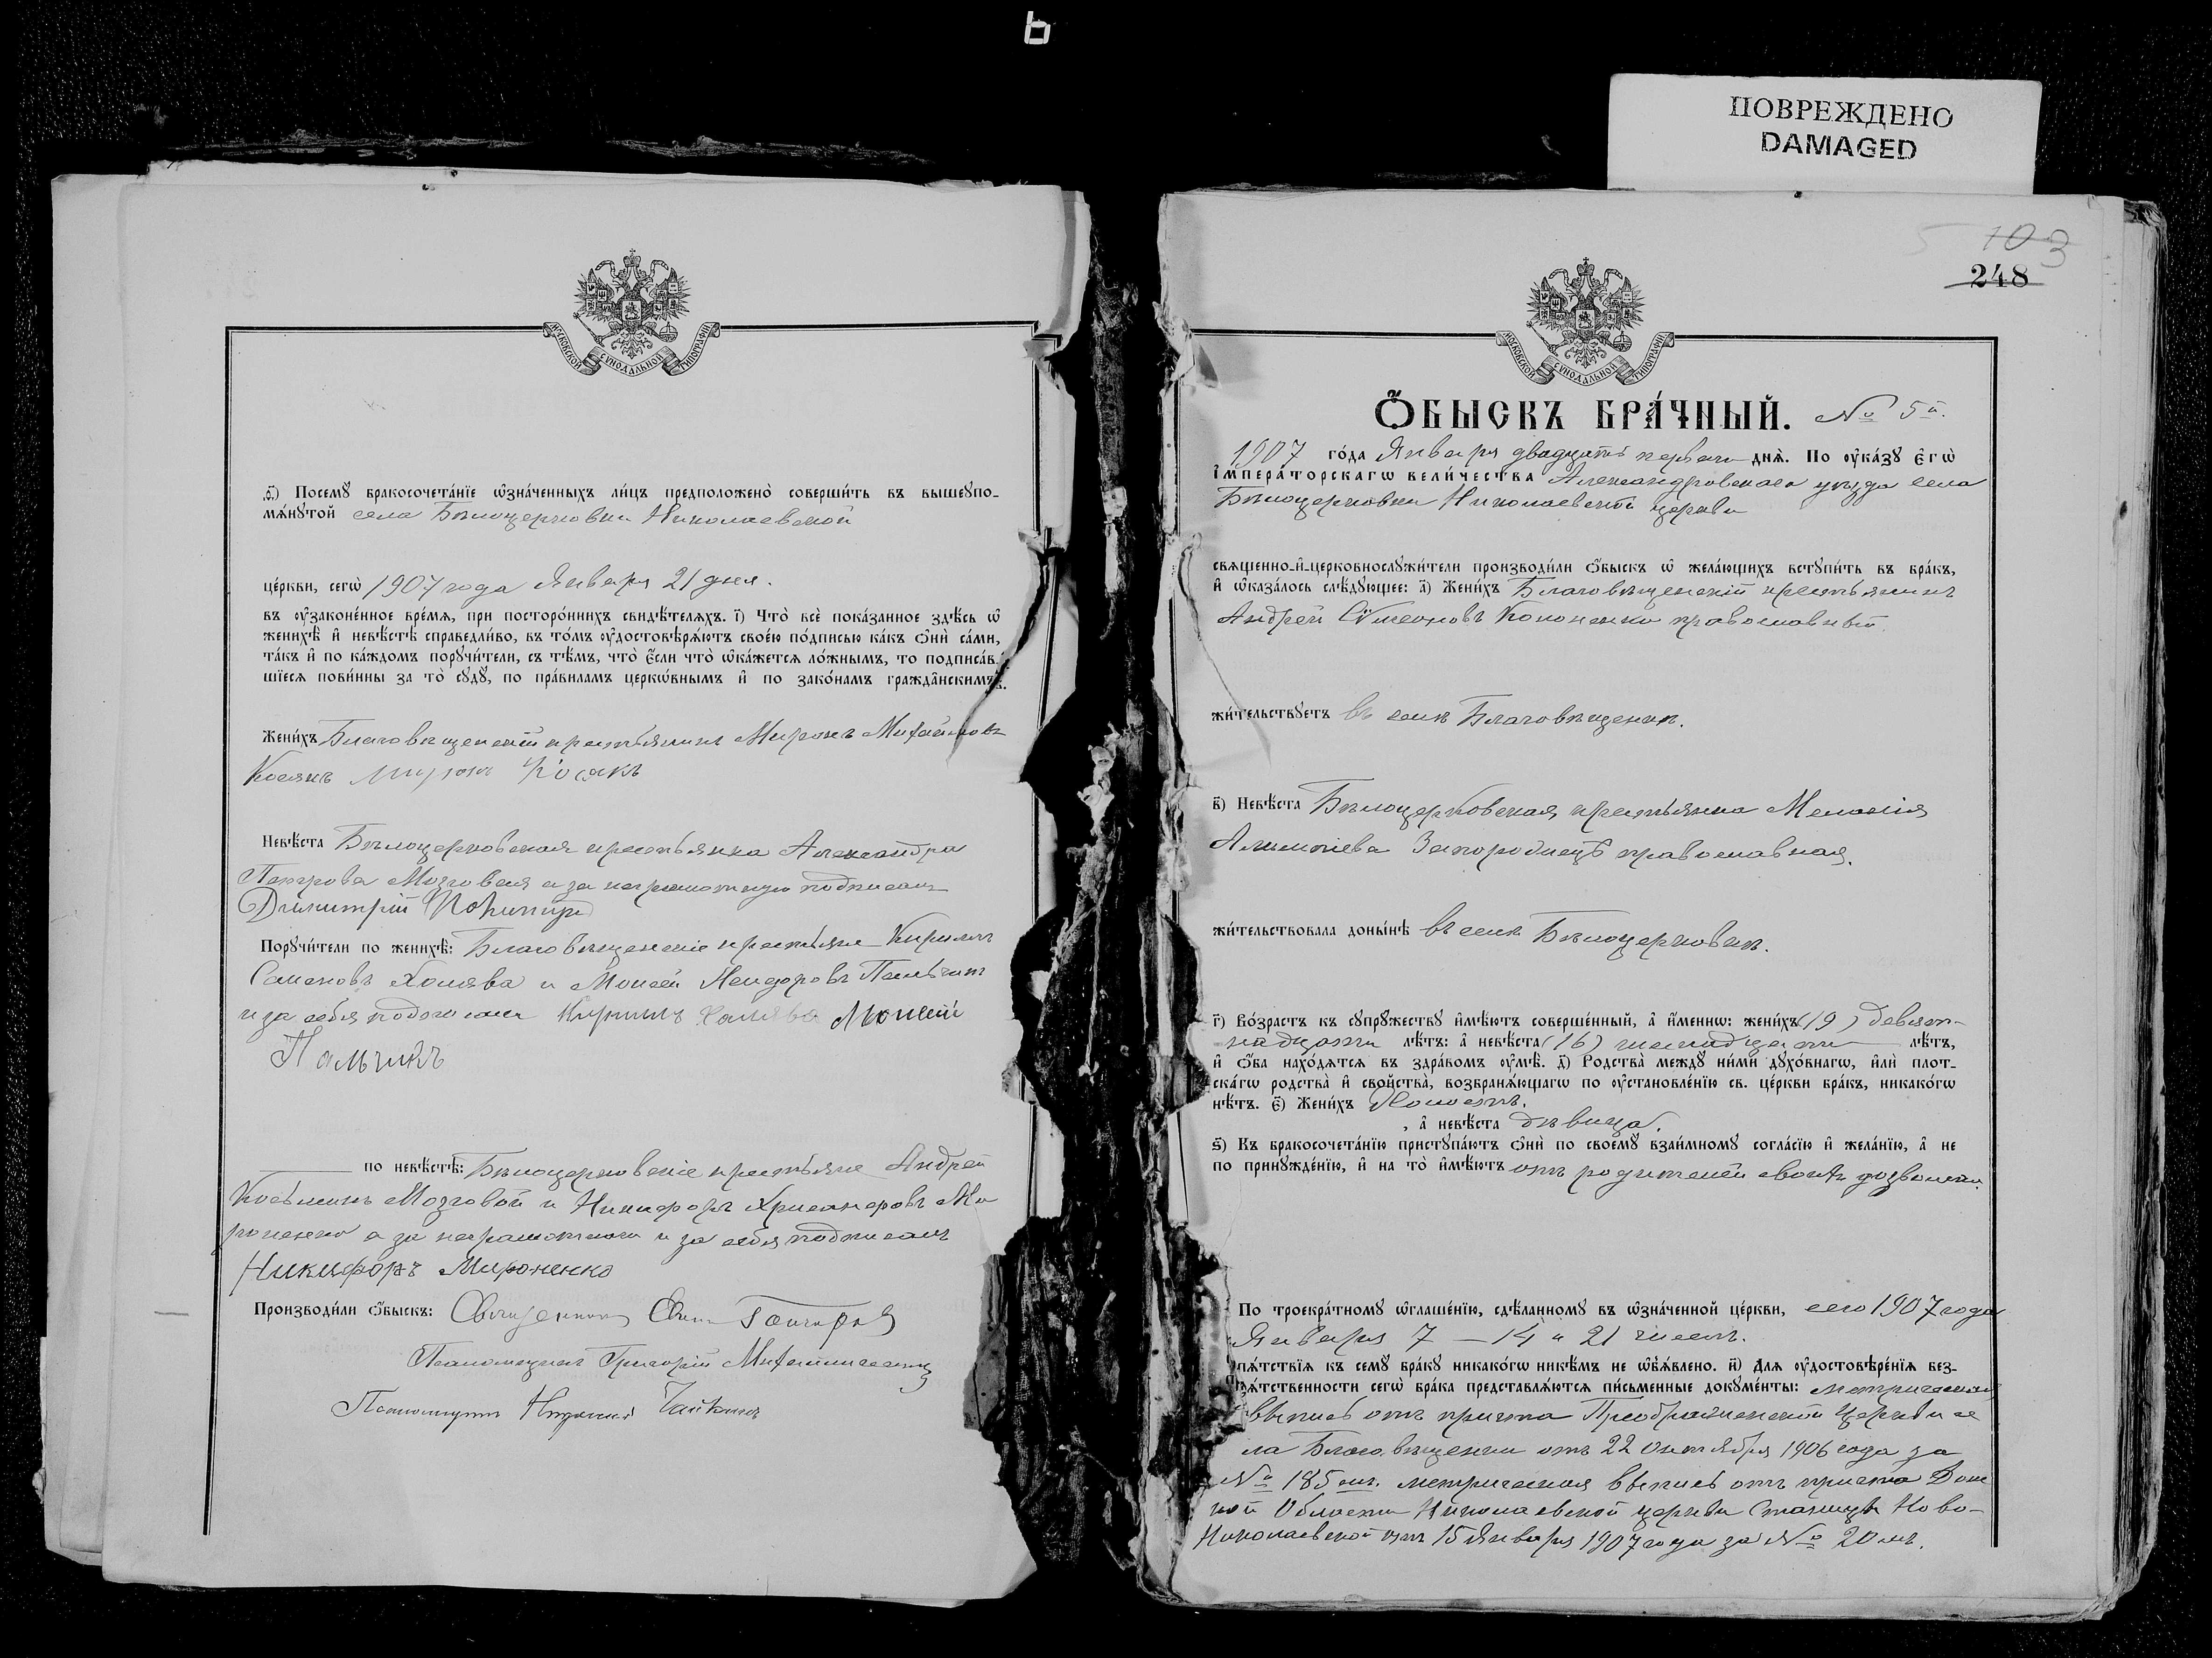 ь
ПОВРЕЖДЕНО
DAMAGED
МОСКОВСКОЙ СѴНОДАЛЬНОЙ ТИПОГРАФІИ
.ѳ҃.) Посемꙋ бракосочета́нїе ѡ҆зна́ченныхъ ли́цъ предположено̀ соверши́ть въ вышеꙋпо-
мѧ́нꙋтой села Бѣлоцерковки Николаевской
це́ркви, сегѡ̀ 1907 года Января 21 дня.
въ ᲂу҆законе́нное вре́мѧ, при посторо́ннихъ свидѣ́телѧхъ. і҃) Что̀ всѐ пока́занное здѣ́сь ѡ҆
женихѣ̀ и҆ невѣ́стѣ справедли́во, въ то́мъ ᲂу҆достовѣрѧ́ютъ свое́ю по́дписью ка́къ ѻ҆нѝ са́ми,
та́къ и҆ по ка́ждомъ порꙋчи́тели, съ тѣ́мъ, что̀ є҆́сли что̀ ѡ҆ка́жетсѧ ло́жнымъ, то подписа́в-
шїесѧ пови́нны за то̀ сꙋдꙋ̀, по пра́виламъ церкѡ́внымъ и҆ по зако́намъ гражда̑нскимъ.
Жени́хъ Благовѣщенскій крестьянинъ Миронъ Михайловъ
Косякъ Миронъ Косякъ
Невѣ́ста Бѣлоцерковская крестьянка Александра
Петрова Мозговая а за неграмотную подписалъ
Димитрій
Порꙋчи́тели по женихѣ̀: Благовѣщенскіе крестьяне Кириллъ
Семеновъ Холява и Моисей Исидоровъ Пальчикъ
и за себя подписали Кириллъ Халява Моисей
Пальчикъ
по невѣ́стѣ: Бѣлоцерковскіе крестьяне Андрей
Козьминъ Мозговой и Никифоръ Хрисанфовъ Ми
роненко а за неграмотного и за себя подписалъ
Никифоръ Мироненко
Производи́ли ѻ҆́быскъ: Священникъ
Псаломщикъ Григорій
Псаломщикъ Чайкинъ
5 103
248
МОСКОВСКОЙ СѴНОДАЛЬНОЙ ТИПОГРАФІИ
Ѻ҆́БЫСКЪ БРА́ЧНЫЙ. № 5й.
1907 го́да Января двадцать перваго днѧ̀. По ᲂу҆ка́зꙋ є҆гѡ̀
и҆мпера́торскагѡ вели́чества Александровскаго уѣзда села
Бѣлоцерковки Николаевской церкви
свѧще́нно-и҆-церковнослꙋжи́тели производи́ли ѻ҆́быскъ ѡ҆ жела́ющихъ встꙋпи́ть въ бра́къ,
и҆ ѡ҆каза́лось слѣ́дꙋющее: а҃) Жени́хъ Благовѣщенскій крестьянинъ
Андрей Сѵмеоновъ Кононенко православный.
жи́тельствꙋетъ въ селѣ Благовѣщенкѣ.
в҃) Невѣ́ста Бѣлоцерковская крестьянка Меланія
Алимпіева Запорожецъ православная.
жи́тельствовала доны́нѣ въ селѣ Бѣлоцерковкѣ.
г҃) Во́зрастъ къ сꙋпрꙋ́жествꙋ и҆мѣ́ютъ соверше́нный, а҆ и҆́меннѡ: жени́хъ (19) девят-
надцати лѣ́тъ: а҆ невѣ́ста (16) шестнадцати лѣ́тъ,
и҆ ѻ҆́ба нахо́дѧтсѧ въ здра́вомъ ᲂу҆мѣ̀. д҃) Родства̀ междꙋ̀ ни́ми дꙋхо́внагѡ, и҆лѝ плот-
ска́гѡ родства̀ и҆ сво́йства̀, возбранѧ́ющагѡ по ᲂу҆становле́нїю св. це́ркви бра́къ, никако́гѡ
нѣ́тъ. є҃) Жени́хъ Холостъ.
, а҆ невѣ́ста дѣвица.
ѕ҃) Къ бракосочета́нїю пристꙋпа́ютъ ѻ҆нѝ по своемꙋ̀ взаи́мномꙋ согла́сїю и҆ жела́нїю, а҆ не
по принꙋжде́нїю, и҆ на то̀ и҆мѣ́ютъ отъ родителей своихъ дозволен.
По троекра́тномꙋ ѡ҆глаше́нїю, сдѣ́ланномꙋ въ ѡ҆зна́ченной це́ркви, сего 1907 года
Января 7 – 14 и 21 чиселъ.
пѧ́тствїѧ къ семꙋ̀ бра́кꙋ никако́гѡ никѣ́мъ не ѡ҆б̾ѧ́влено. и҃) Длѧ ᲂу҆достовѣре́нїѧ без-
пѧ́тственности сегѡ̀ бра́ка представлѧ́ютсѧ пи́сьменные докꙋме́нты: метрическая
выпись отъ причта Преображенской церкви се
ла Благовѣщенки отъ 22 октября 1906 года за
№ 185 мъ. метрическая выпись отъ причта Дон
ской Области Николаевской церкви станицы Ново-
Николаевской отъ 15 Января 1907 года за № 20 мъ.